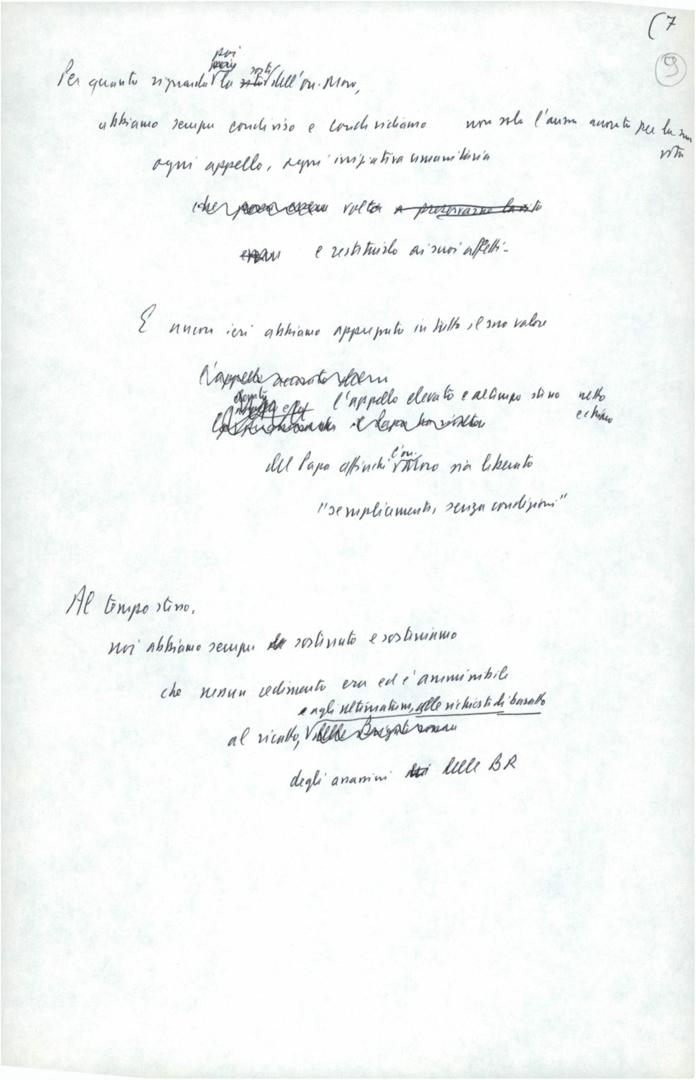 (7
9
Per quanto riguarda poi la sorte dell'on. Moro,
abbiamo sempre condiviso e condividiamo non solo l'ansia per la sua
vita
ogni appello, ogni iniziativa umanitaria
che volta a preservarne la vita
e restituirlo ai suoi affetti.
E ancora ieri abbiamo apprezzato in tutto il suo valore
L'appello
l'appello elevato e al tempo stesso netto
e chiaro
del Papa affinché l'on. Moro sia liberato
"semplicemente, senza condizioni"
Al tempo stesso,
noi abbiamo sempre sostenuto e sosteniamo
che nessun cedimento era ed è ammissibile
e agli ultimatum, alle richieste di baratto
al ricatto, delle Brigate rosse
degli assassini delle BR